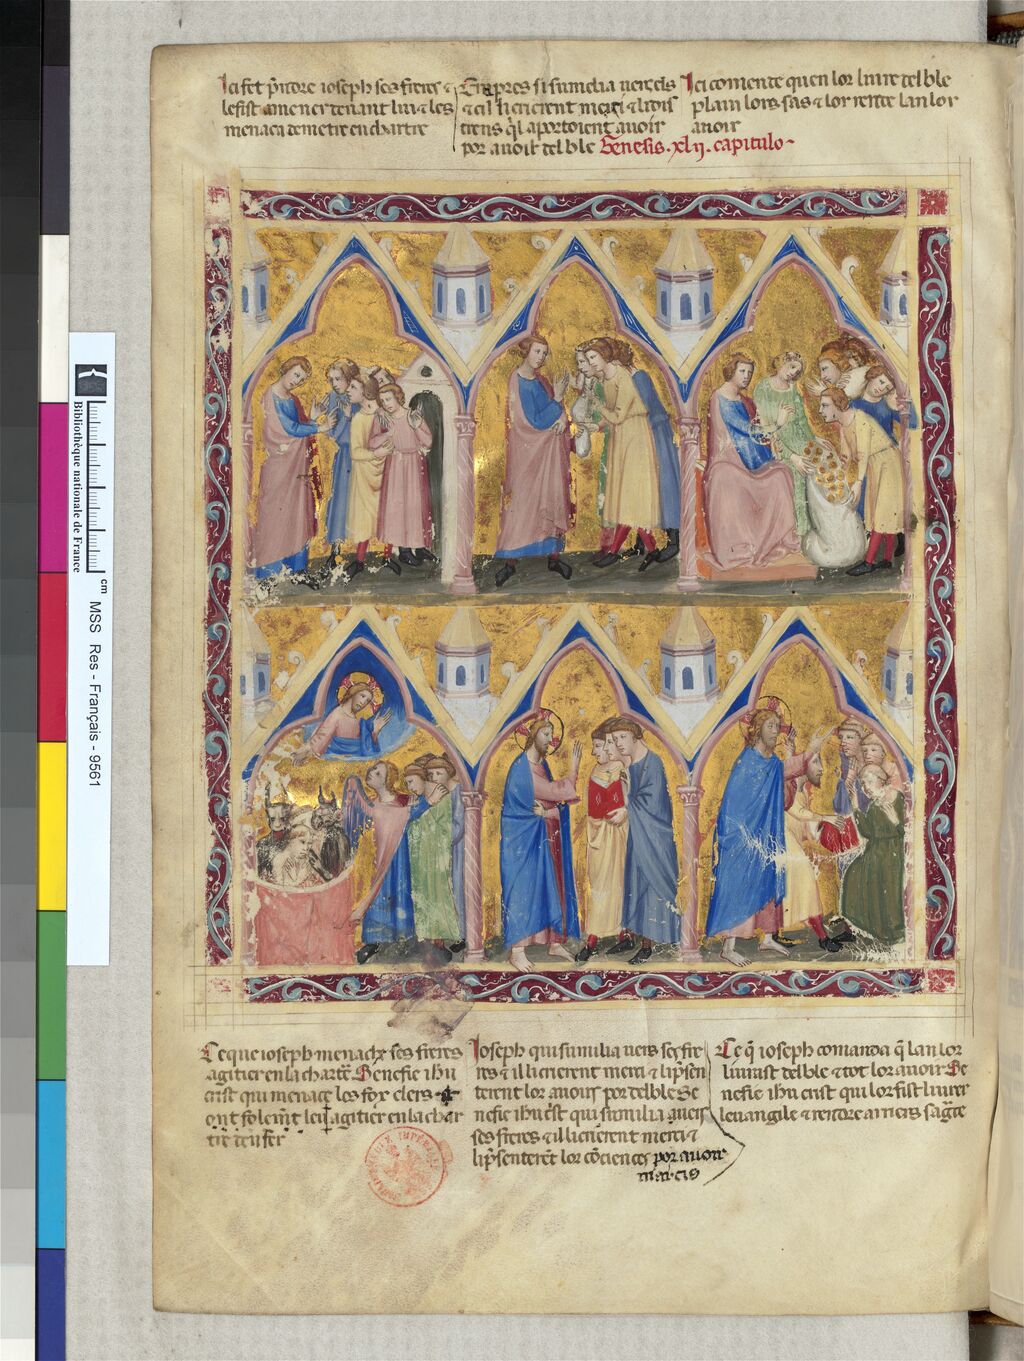 Ici fet prndre ioseph ses freres &
les fist amener deuant lui & les
menaca de metre en chartre
Enapres si sumelia uers els
& cil li crierent merci & li dois
riens q̃l aportoient auoir
por auoir del ble Genesis .xlij. capitulo
Ici comente quen lor liure del ble
plain lors sas & lor rente lan lor
auoir
Ce que ioseph menache ses freres
agitier en la chartre Senefie ihu
crist qui menace les fox clers
ont folemt leu agitier en la char
tre denfer
Ioseph qui sumilia uers ses fre
res & il li crierent merci & lip̃sen
terent lor auoirs por del ble Se
nefie ihu crist qui sumilia uers
ses freres & il li crierent merci &
lip̃senterẽt lor cõciences por auoir
marcis
Ce q̃ ioseph comanda q̃ lan lor
liurast del ble & tot lor auoir Se
nefie ihu crist qui lor fist liurer
leuangile & rendre arriers
Bibliothèque nationale de France
cm
MSS Res - Français - 9561